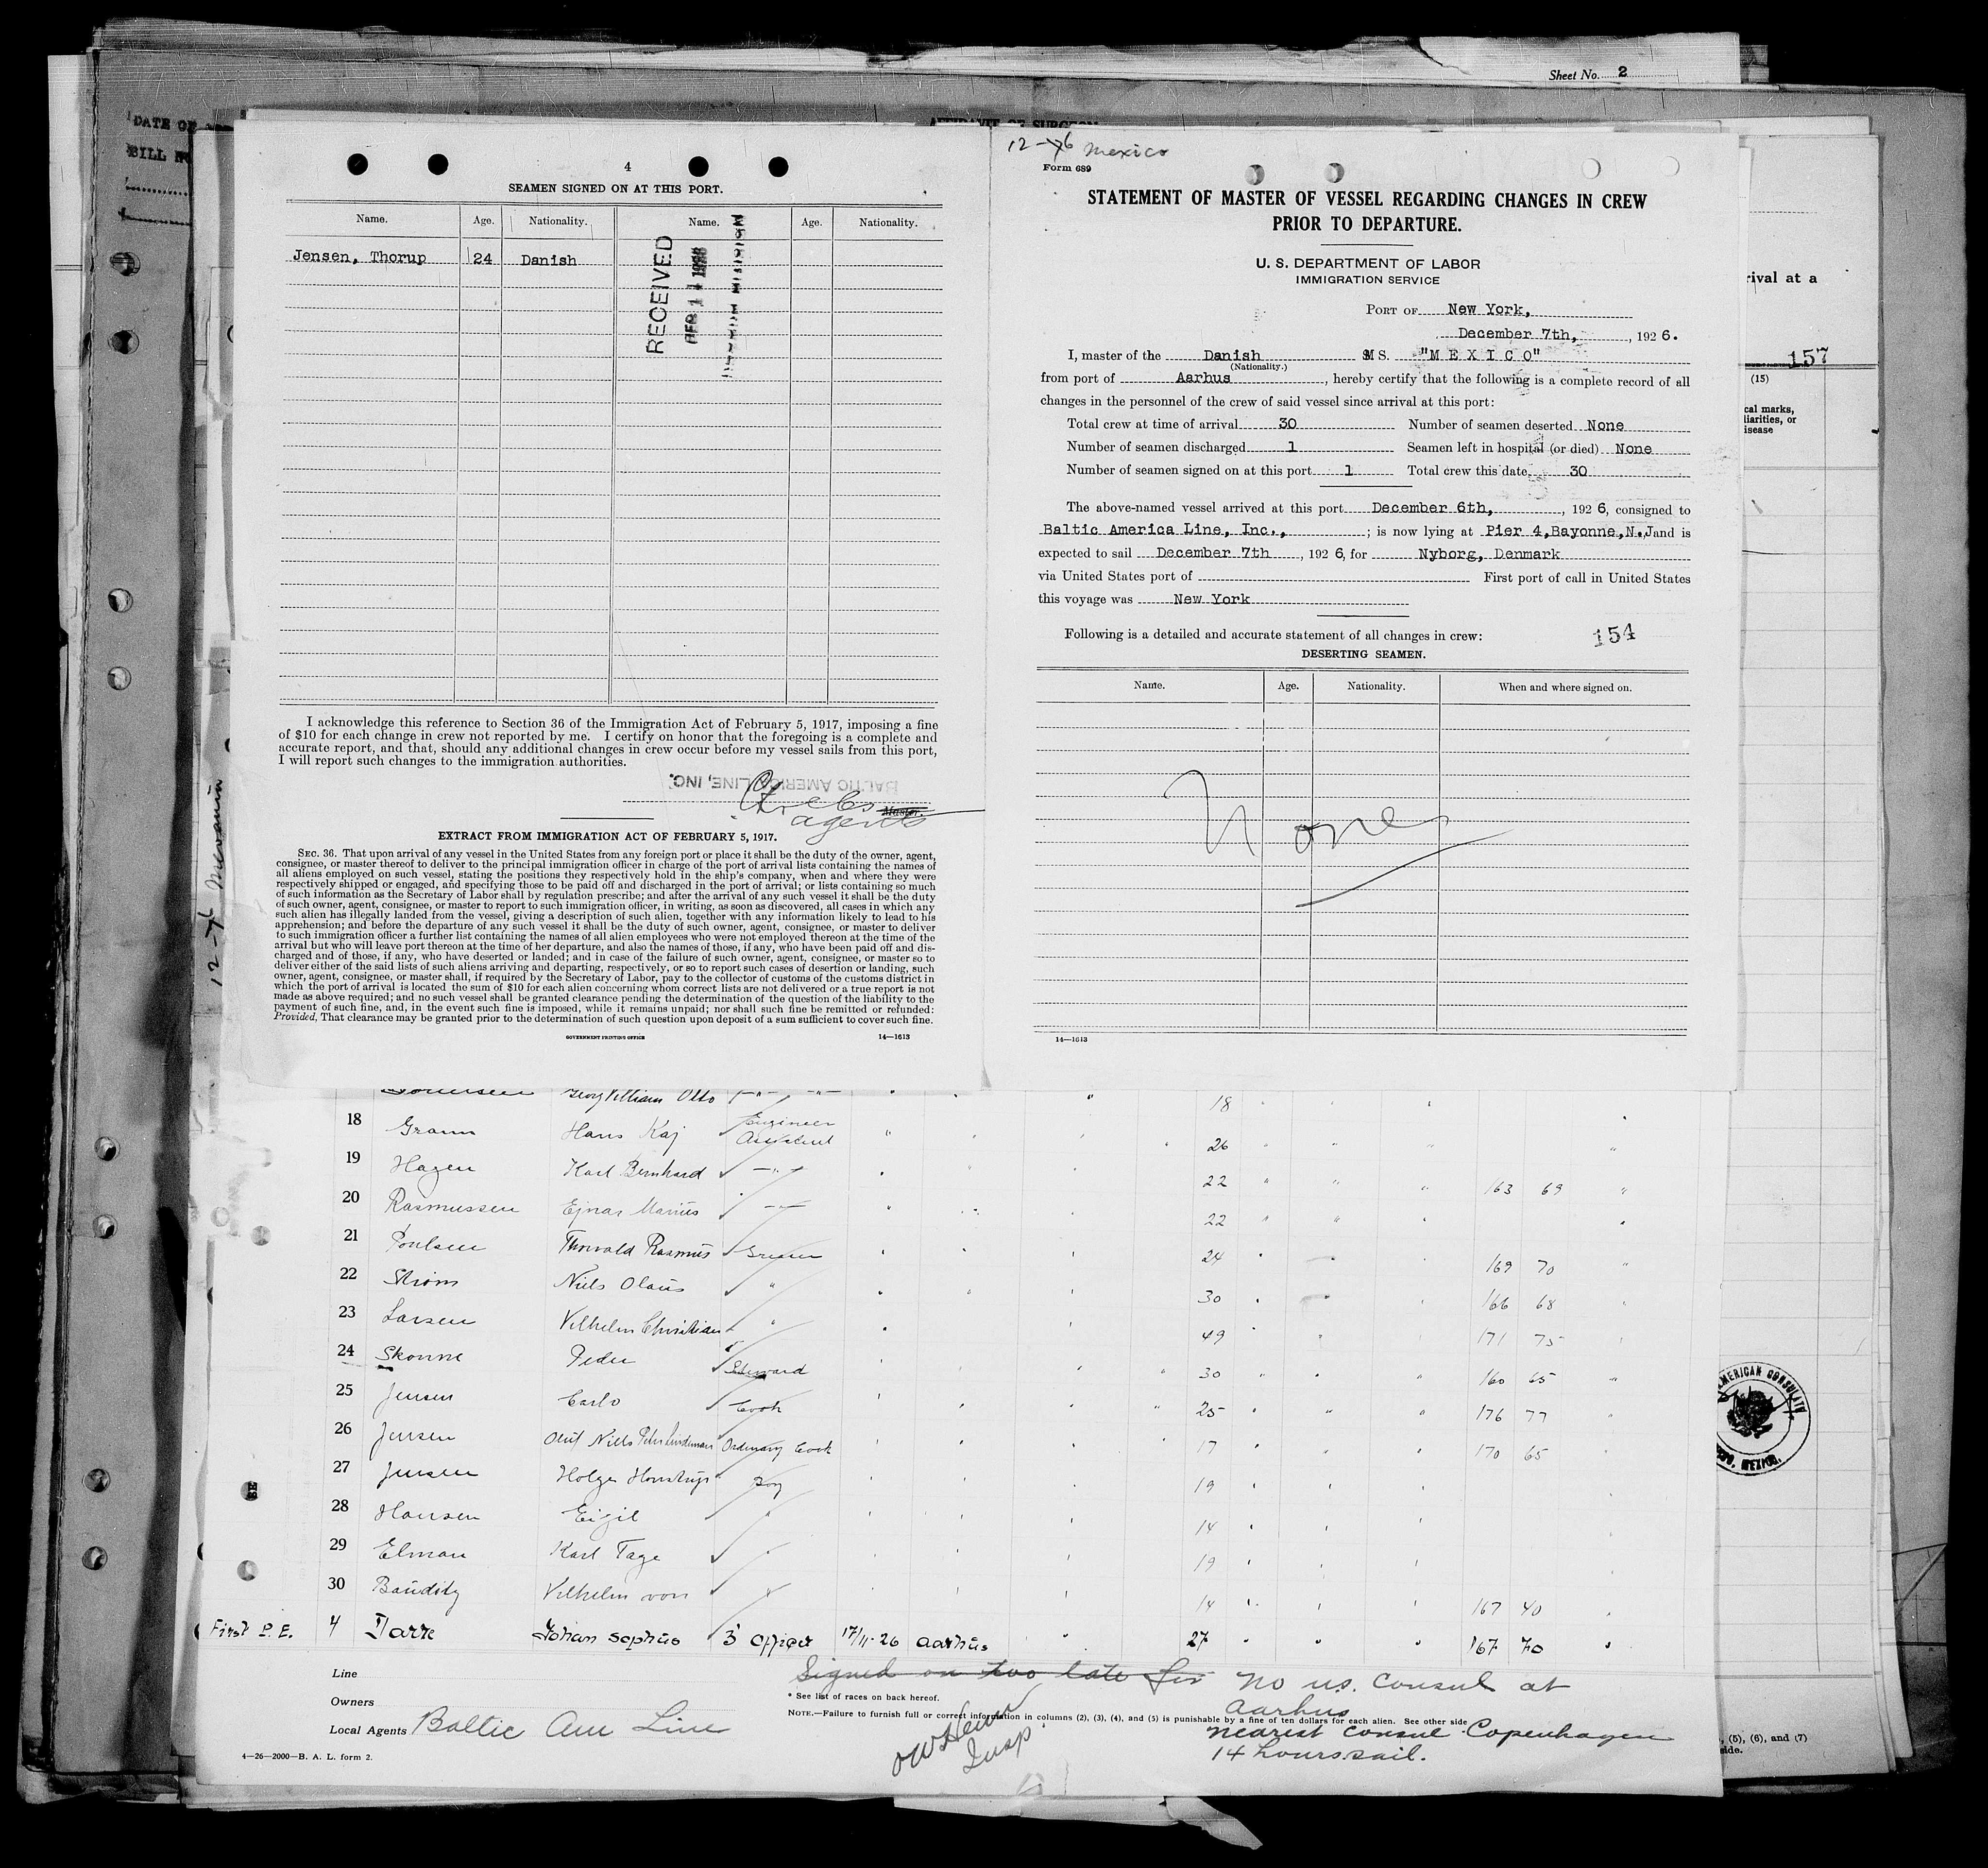 Sheet No. 2
DATE OF
BILL
AFFIDAVIT OF SURGEON
4
SEAMEN SIGNED ON AT THIS PORT.
Name. Age. Nationality. Name. Age. Nationality.
Jensen, Thorup 24 Danish
RECEIVED
FEB 11 1928
I acknowledge this reference to Section 36 of the Immigration Act of February 5, 1917, imposing a fine
of $10 for each change in crew not reported by me. I certify on honor that the foregoing is a complete and
accurate report, and that, should any additional changes in crew occur before my vessel sails from this port,
I will report such changes to the immigration authorities.
BALTIC AMERICA LINE, INC.
Master.
agents
EXTRACT FROM IMMIGRATION ACT OF FEBRUARY 5, 1917.
SEC. 36. That upon arrival of any vessel in the United States from any foreign port or place it shall be the duty of the owner, agent,
consignee, or master thereof to deliver to the principal immigration officer in charge of the port of arrival lists containing the names of
all aliens employed on such vessel, stating the positions they respectively hold in the ship's company, when and where they were
respectively shipped or engaged, and specifying those to be paid off and discharged in the port of arrival; or lists containing so much
of such information as the Secretary of Labor shall by regulation prescribe; and after the arrival of any such vessel it shall be the duty
of such owner, agent, consignee, or master to report to such immigration officer, in writing, as soon as discovered, all cases in which any
such alien has illegally landed from the vessel, giving a description of such alien, together with any information likely to lead to his
apprehension; and before the departure of any such vessel it shall be the duty of such owner, agent, consignee, or master to deliver
to such immigration officer a further list containing the names of all alien employees who were not employed thereon at the time of the
arrival but who will leave port thereon at the time of her departure, and also the names of those, if any, who have been paid off and dis-
charged and of those, if any, who have deserted or landed; and in case of the failure of such owner, agent, consignee, or master so to
deliver either of the said lists of such aliens arriving and departing, respectively, or so to report such cases of desertion or landing, such
owner, agent, consignee, or master shall, if required by the Secretary of Labor, pay to the collector of customs of the customs district in
which the port of arrival is located the sum of $10 for each alien concerning whom correct lists are not delivered or a true report is not
made as above required; and no such vessel shall be granted clearance pending the determination of the question of the liability to the
payment of such fine, and, in the event such fine is imposed, while it remains unpaid; nor shall such fine be remitted or refunded:
Provided, That clearance may be granted prior to the determination of such question upon deposit of a sum sufficient to cover such fine.
GOVERNMENT PRINTING OFFICE 14—1613
12-76 Mexico
Form 689
STATEMENT OF MASTER OF VESSEL REGARDING CHANGES IN CREW
PRIOR TO DEPARTURE.
U. S. DEPARTMENT OF LABOR
IMMIGRATION SERVICE
PORT OF New York,
December 7th, , 1926.
I, master of the Danish MS. "M E X I C O"
(Nationality.)
from port of Aarhus , hereby certify that the following is a complete record of all
changes in the personnel of the crew of said vessel since arrival at this port:
Total crew at time of arrival 30 Number of seamen deserted None
Number of seamen discharged 1 Seamen left in hospital (or died) None
Number of seamen signed on at this port 1 Total crew this date 30
The above-named vessel arrived at this port December 6th, , 1926, consigned to
Baltic America Line, Inc., ; is now lying at Pier 4,Bayonne,N.J and is
expected to sail December 7th , 1926, for Nyborg, Denmark
via United States port of First port of call in United States
this voyage was New York
Following is a detailed and accurate statement of all changes in crew: 154
DESERTING SEAMEN.
Name. Age. Nationality. When and where signed on.
None
14—1613
rival at a
157
(15)
cal marks,
liarities, or
isease
Otto 18
18 Gramn Hans Kaj Engineer Assistent " 26
19 Hagen Karl Bernhard " 22 163 69
20 Rasmussen Ejnar Marius " 22
21 Poulsen Thorvald Rasmus Greaser 24 169 70
22 Strøm Niels Olaus " 30 166 68
23 Larsen Vilhelm Christian " 49 171 75
24 Skonne Peder Steward 30 160 65
25 Jensen Carlo Cook 25 176 77
26 Jensen Oluf Niels Peter Lindeman Ordinary Cook 17 170 65
27 Jensen Holger Boy 19
28 Hansen Eigil " 14
29 Elman Karl Tage " 19
30 Bauditz Vilhelm von " 14 167 40
First P.E. 4 Darre Johan Sophus 3' Officer 17/11-26 Aarhus 27 167 70
Line Signed on too late for No us. Consul at
Owners * See list of races on back hereof. Aarhus
NOTE.—Failure to furnish full or correct information in columns (2), (3), (4), and (5) is punishable by a fine of ten dollars for each alien. See other side
Local Agents Baltic Am Line nearest consul Copenhagen
14 hours sail.
Insp
4—26—2000—B. A. L. form 2.
, (5), (6), and (7)
side.
AMERICAN CONSULATE
MEXICO.